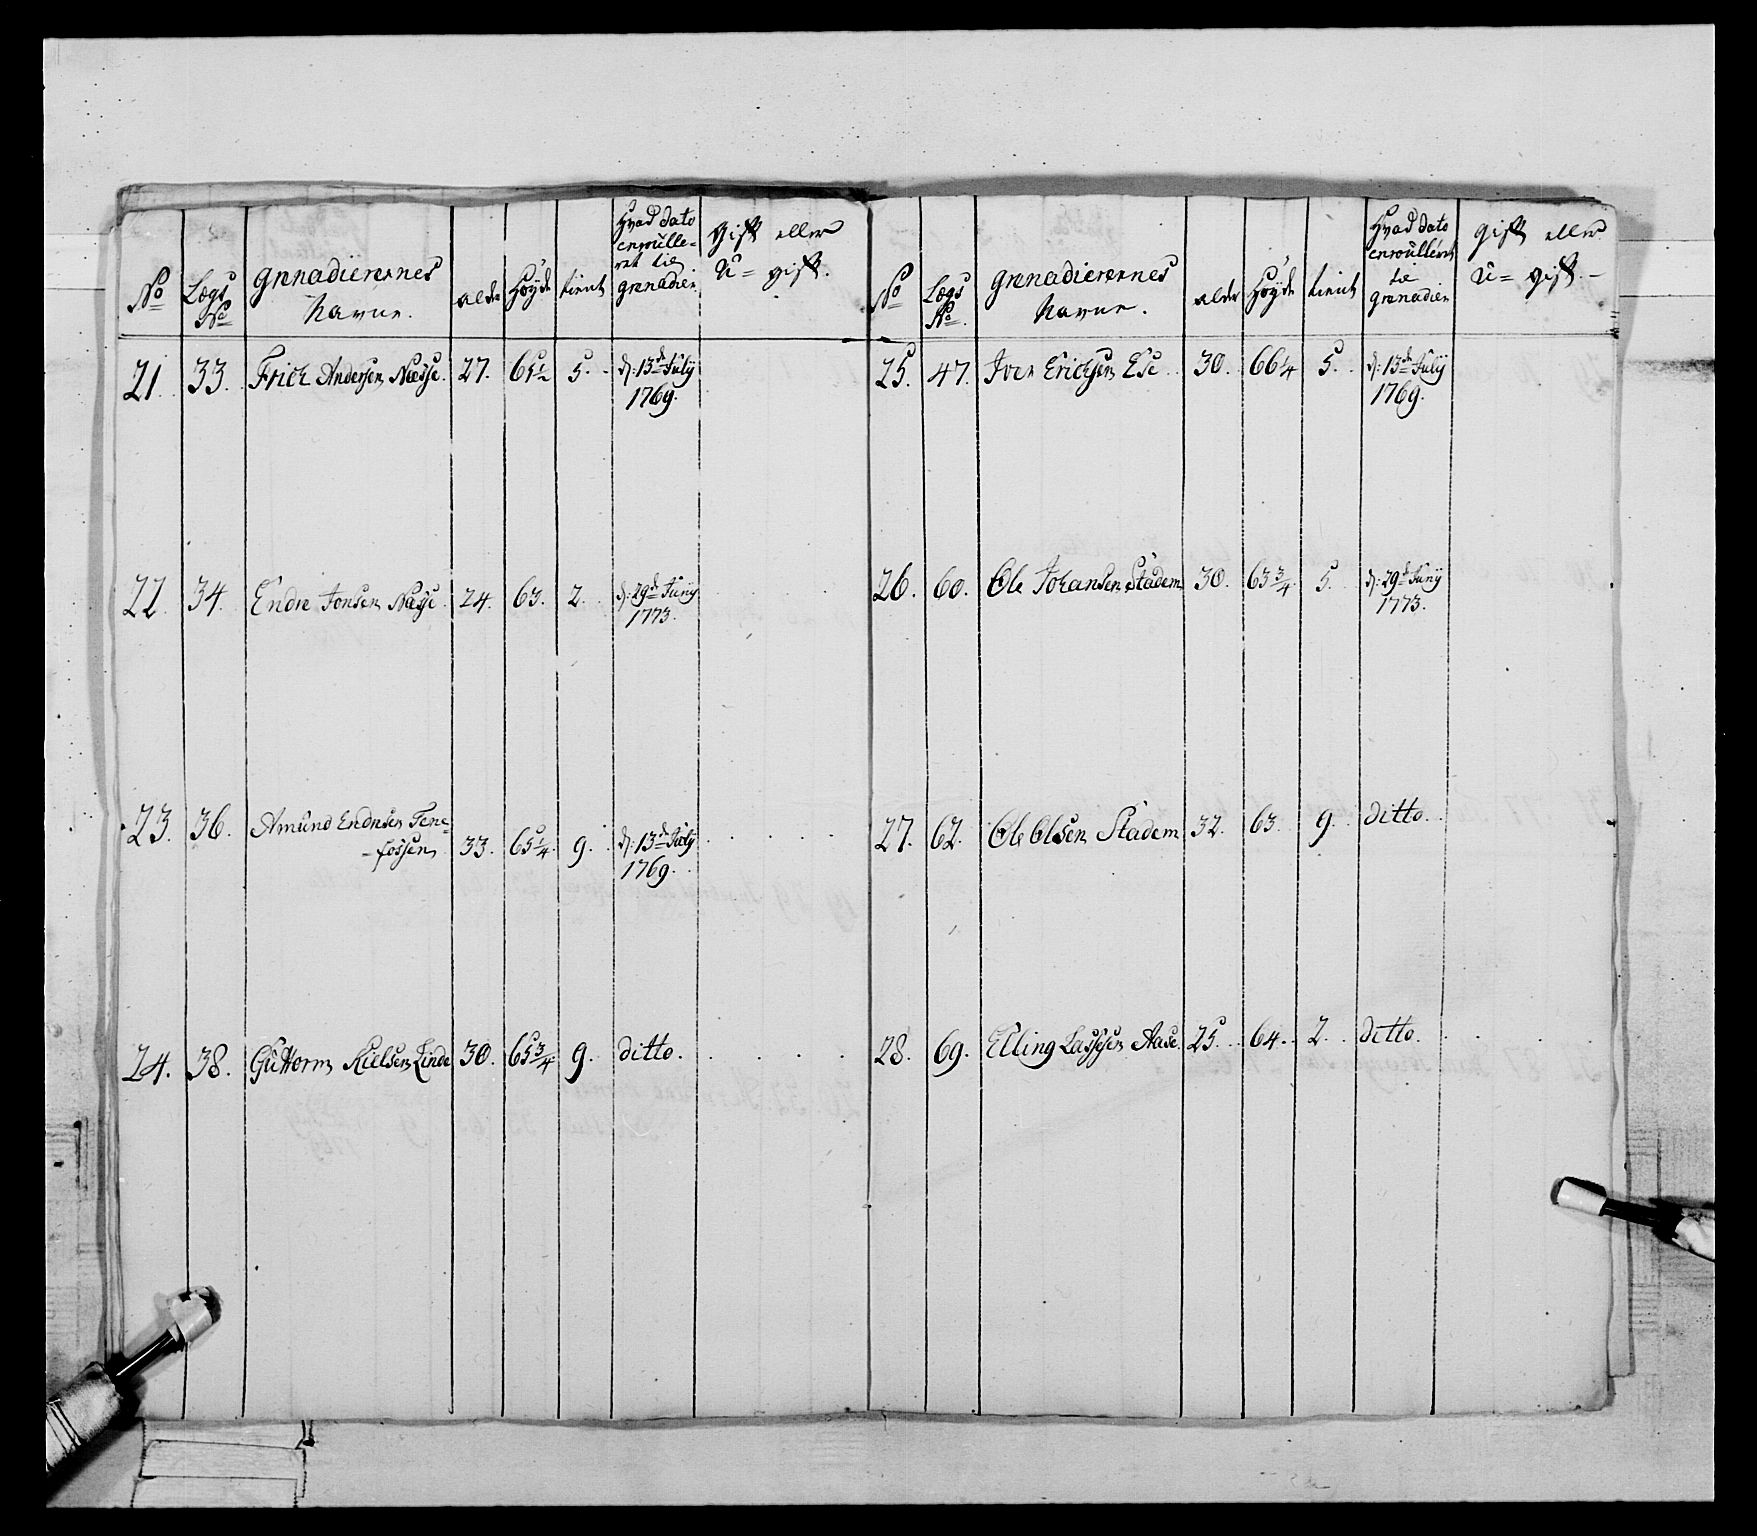 No Lægs No grenadierernes Navne. alder Høyde tient Hvad dato enroulleret til grenadier gift eller U= gift.
21. 33. Erich Andersen Næsse. 27. 65 1/2 5. d: 13de July 1769.
22. 34. Endre Jonsen Næsse 24. 63. 2. d: 29de Juny 1773.
23. 36. Amund Endresen Tene=
fossen 33. 65 1/4. 9. d: 13de July 1769.
24. 38. Guttorm Nielsen Linde 30. 65 3/4 9. ditto.
No Lægs No. grenadierernes Navne. alder Høyde tient Hvad dato enroulleret til grenadier gift eller U= gift.
25. 47. Iver Erichsen Ese 30. 66 1/4 5. d: 13de July 1769.
26. 60. Ole Johansen Stadem 30. 63 3/4 5. d: 29de Juny 1773.
27. 62. Ole Olsen Stadem 32. 63. 9. ditto.
28. 69. Elling Lassesen Aase. 25. 64. 2. ditto.